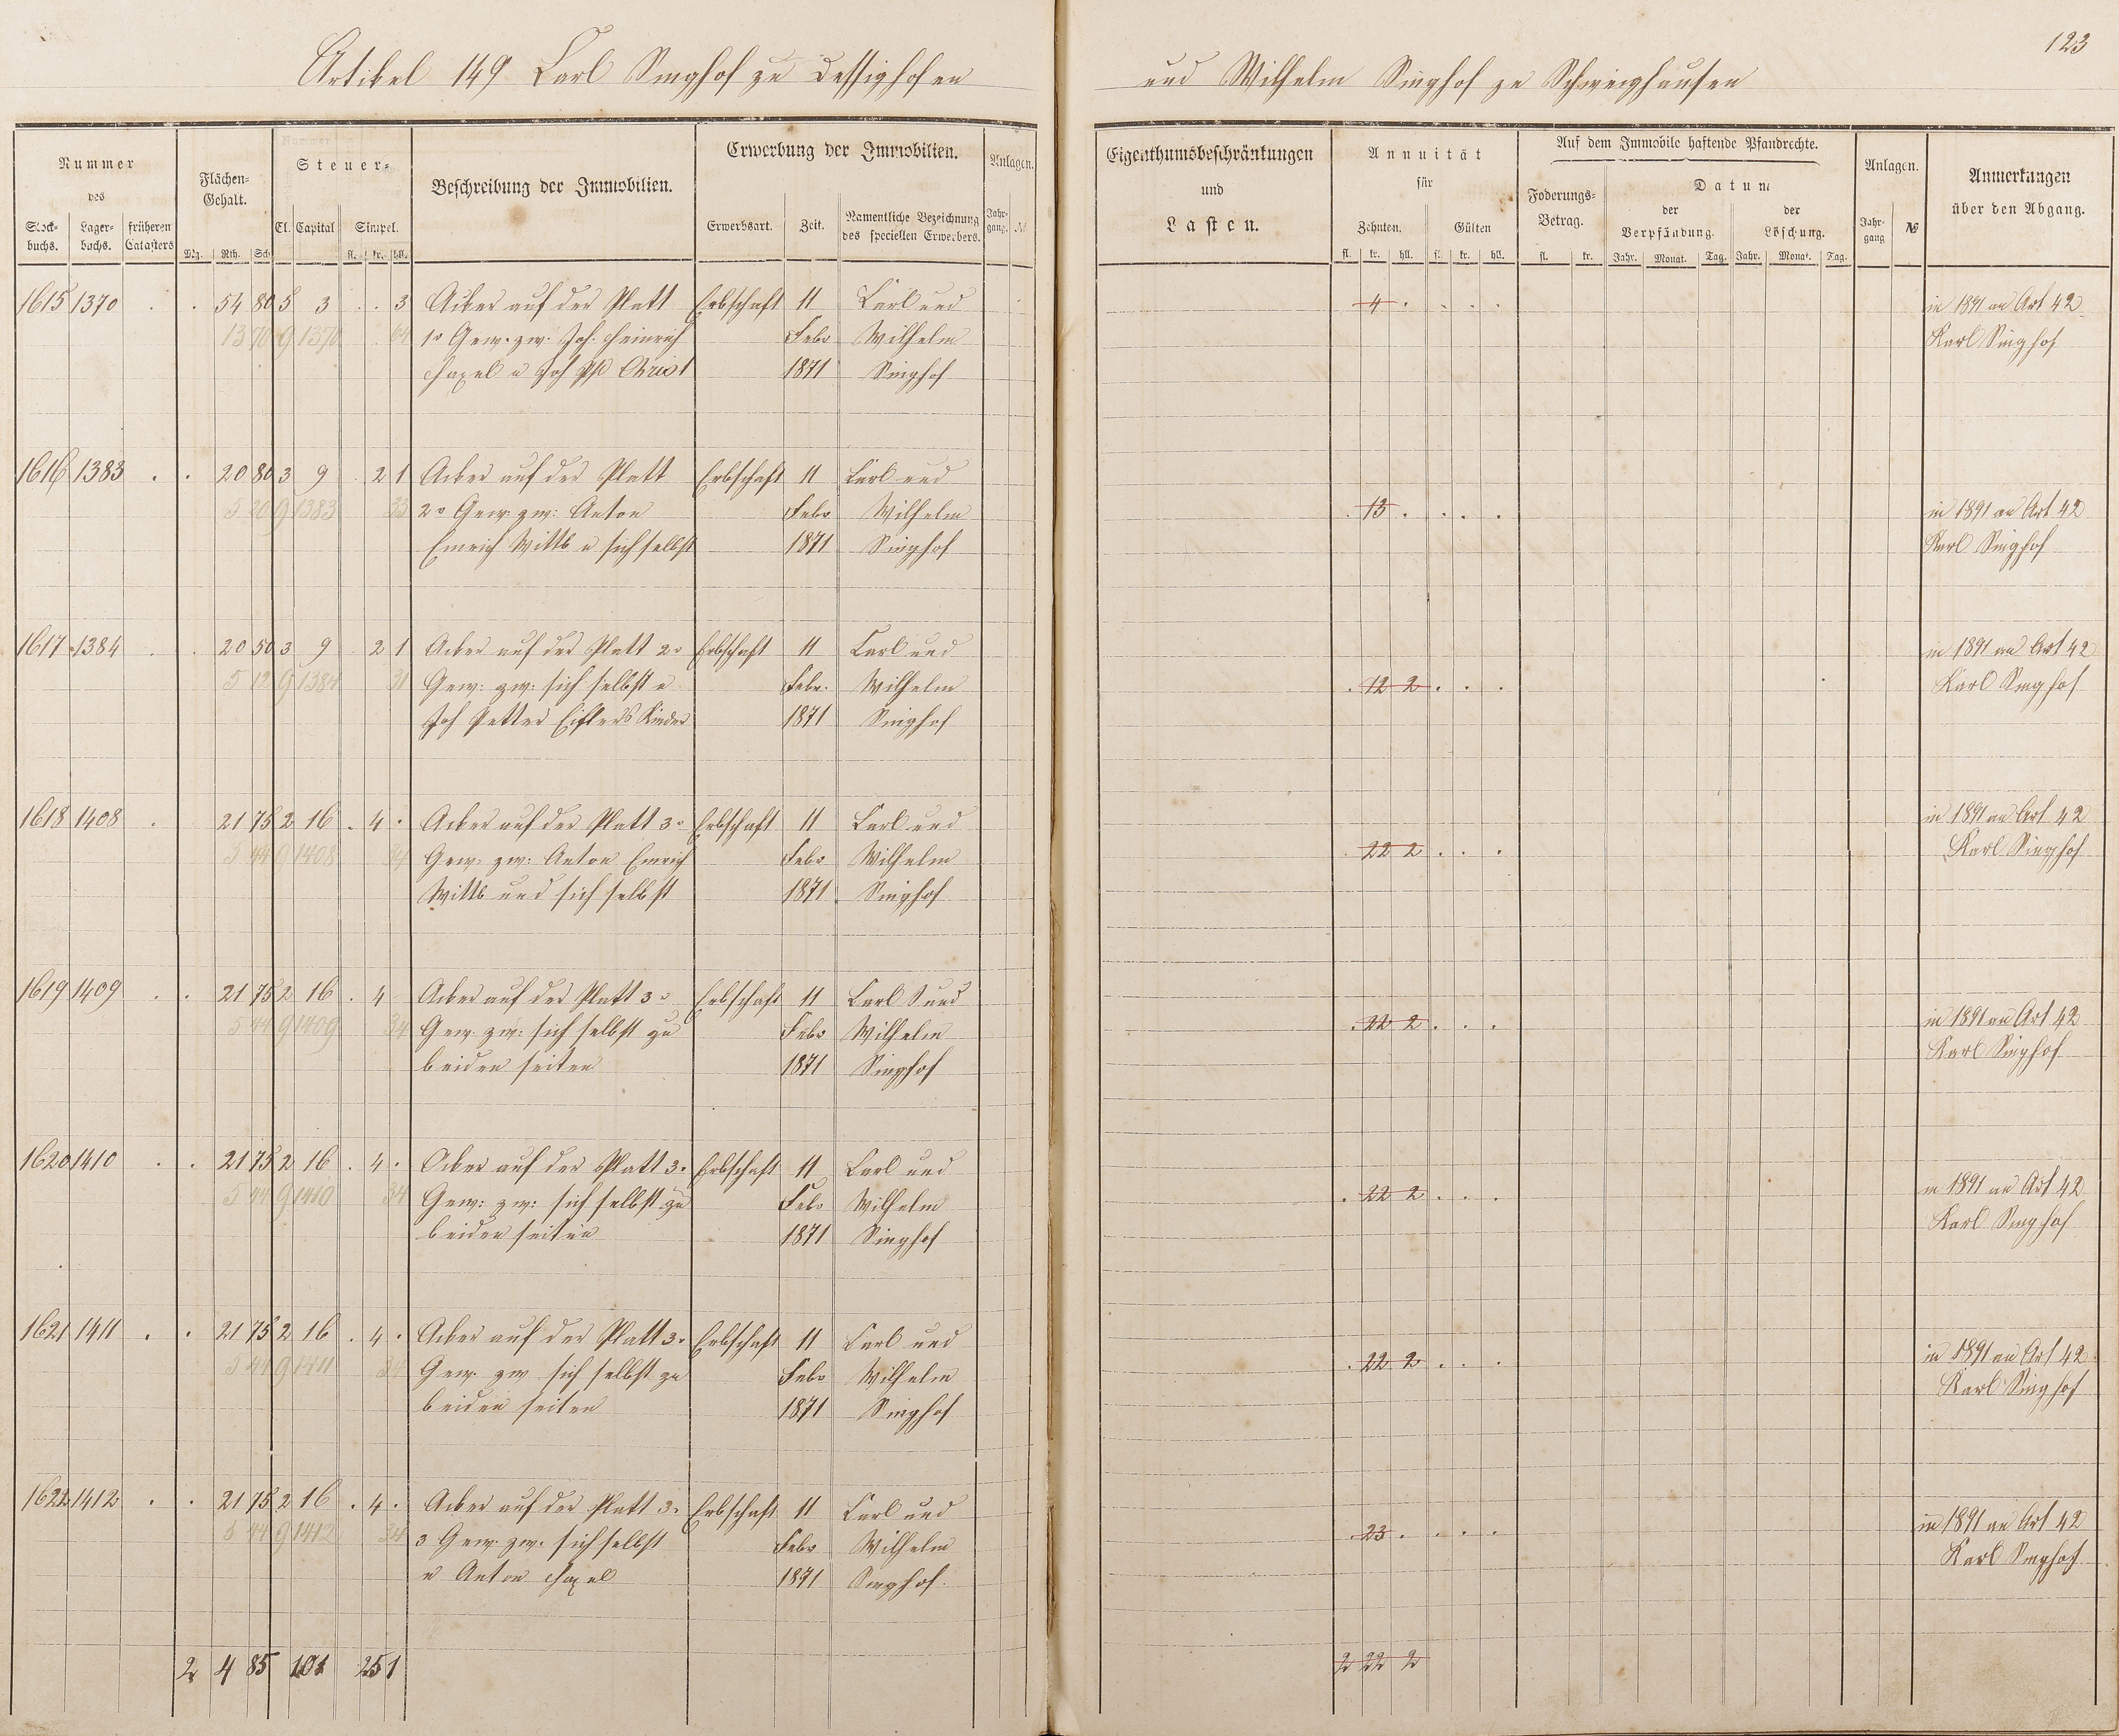 123
Artikel 149 Carl Singhof zu Dessighofen und Wilhelm Singhof zu Schweighausen
Nummer
des
Stock-
buchs.
Lager-
buchs.
früheren
Catasters
Flächen-
Gehalt.
Mg. Rth. Sch.
Steuer-
Cl. Capital Simpel.
fl. kr. hll.
Beschreibung der Immobilien.
Erwerbung der Immobilien.
Erwerbsart. Zeit.
Namentliche Bezeichnung
des speciellen Erwerbers.
Anlagen.
Jahr-
gang. №
Eigenthumsbeschränkungen
und
Lasten.
Annuität
für
Zehnten. Gülten
fl. kr. hll. fl. kr. hll.
Auf dem Immobile haftende Pfandrechte.
Foderungs-
Betrag.
fl. kr.
Datum
der
Verpfändung.
der
Löschung.
Jahr. Monat. Tag. Jahr. Monat. Tag.
Anlagen.
Jahr-
gang №
Anmerkungen
über den Abgang.
1615 1370 . . 54 80 5 3 . . 3 Acker auf der Platt Erbschaft 11 Carl und 4 . . . . in 1891 an Art 42
13 70 9 1370 64 1r Gew. zw: Joh. Heinrich Febr Wilhelm Karl Singhof
Haxel u Joh Ph Christ 1871 Singhof
1616 1383 . . 20 80 3 9 . 2 1 Acker auf der Platt Erbschaft 11 Carl und
5 20 9 1383 33 2r Gew: zw: Anton Febr Wilhelm . 13 . . . . in 1891 an Art 42
Emrich Wittb u sich selbst 1871 Singhof Karl Singhof
1617 1384 . . 20 50 3 9 . 2 1 Acker auf der Platt 2r Erbschaft 11 Carl und in 1891 an Art 42
5 12 9 1384 31 Gew: zw: sich selbst u Febr. Wilhelm . 12 2 . . . Karl Singhof
Joh Petter Eiflers Kinder 1871 Singhof
1618 1408 . 21 75 2 16 . 4 . Acker auf der Platt 3r Erbschaft 11 Carl und in 1891 an Art 42
5 44 9 1408 34 Gew: zw: Anton Emrich Febr Wilhelm . 22 2 . . . Karl Singhof
Wittb und sich selbst 1871 Singhof
1619 1409 . . 21 75 2 16 . 4 Acker auf der Platt 3r Erbschaft 11 Carl S und
5 44 9 1409 34 Gew. zw: sich selbst zu Febr Wilhelm . 22 2 . . . in 1891 an Art 42
beiden seiten 1871 Singhof Karl Singhof
1620 1410 . . 21 75 2 16 . 4 . Acker auf der Platt 3r Erbschaft 11 Carl und
5 44 9 1410 34 Gew: zw: sich selbst zu Febr Wilhelm . 22 2 . . . in 1891 an Art 42
beiden seiten 1871 Singhof Karl Singhof
1621 1411 . . 21 75 2 16 . 4 . Acker auf der Platt 3r Erbschaft 11 Carl und
5 44 9 1411 34 Gew. zw sich selbst zu Febr Wilhelm . 22 2 . . . in 1891 an Art 42
beiden seiten 1871 Singhof Karl Singhof
1622 1412 . . 21 75 2 16 . 4 . Acker auf der Platt 3r Erbschaft 11 Carl und
5 44 9 1412 34 3 Gew. zw. sich selbst Febr Wilhelm . 23 . . . . in 1891 an Art 42
u Anton Haxel 1871 Singhof. Karl Singhof
2 4 85 101 25 1 2 22 2